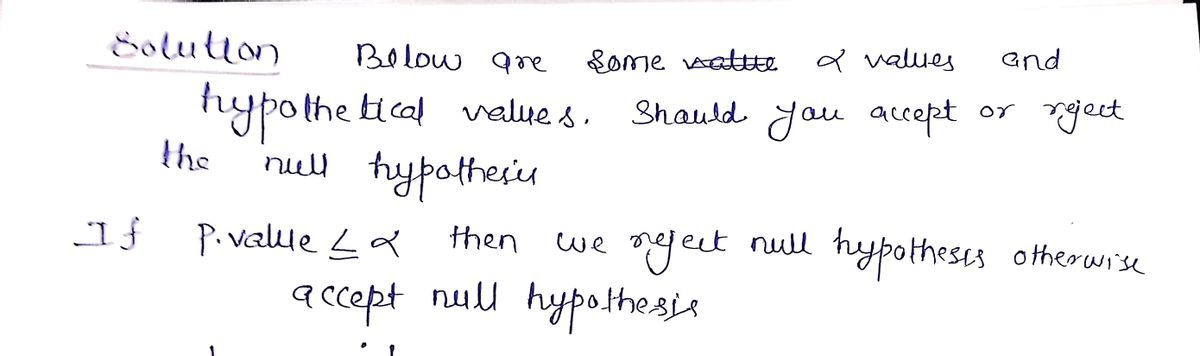 Solution Below are some α values and
hypothetical values. Should you accept or reject
the null hypothesis
If P.value ≤ α then we reject null hypothesis otherwise
accept null hypothesis